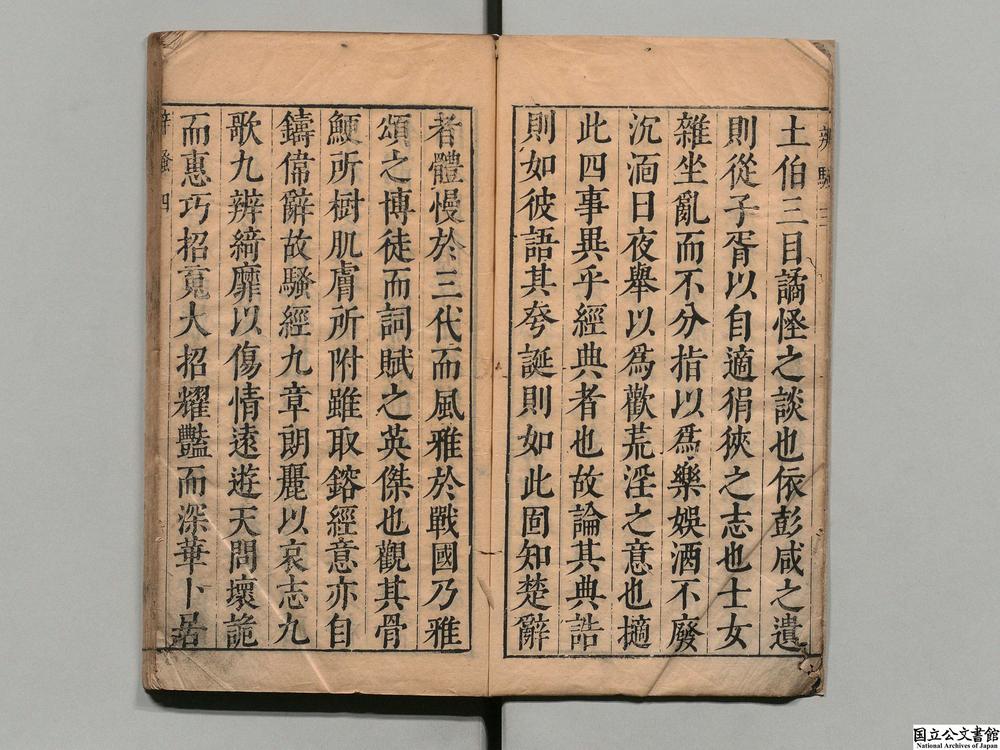 辨騷 三
土伯三目譎怪之談也依彭咸之遺
則從子胥以自適狷狹之志也士女
雜坐亂而不分指以爲樂娛酒不廢
沉湎日夜舉以爲歡荒淫之意也擿
此四事異乎經典者也故論其典誥
則如彼語其夸誕則如此固知楚辭
者體慢於三代而風雅於戰國乃雅
頌之博徒而詞賦之英傑也觀其骨
鯁所樹肌膚所附雖取鎔經意亦自
鑄偉辭故騷經九章朗麗以哀志九
歌九辨綺靡以傷情遠遊天問壞詭
而惠巧招䰟大招耀豔而深華卜居
辨騷 四
国立公文書館
National Archives of Japan